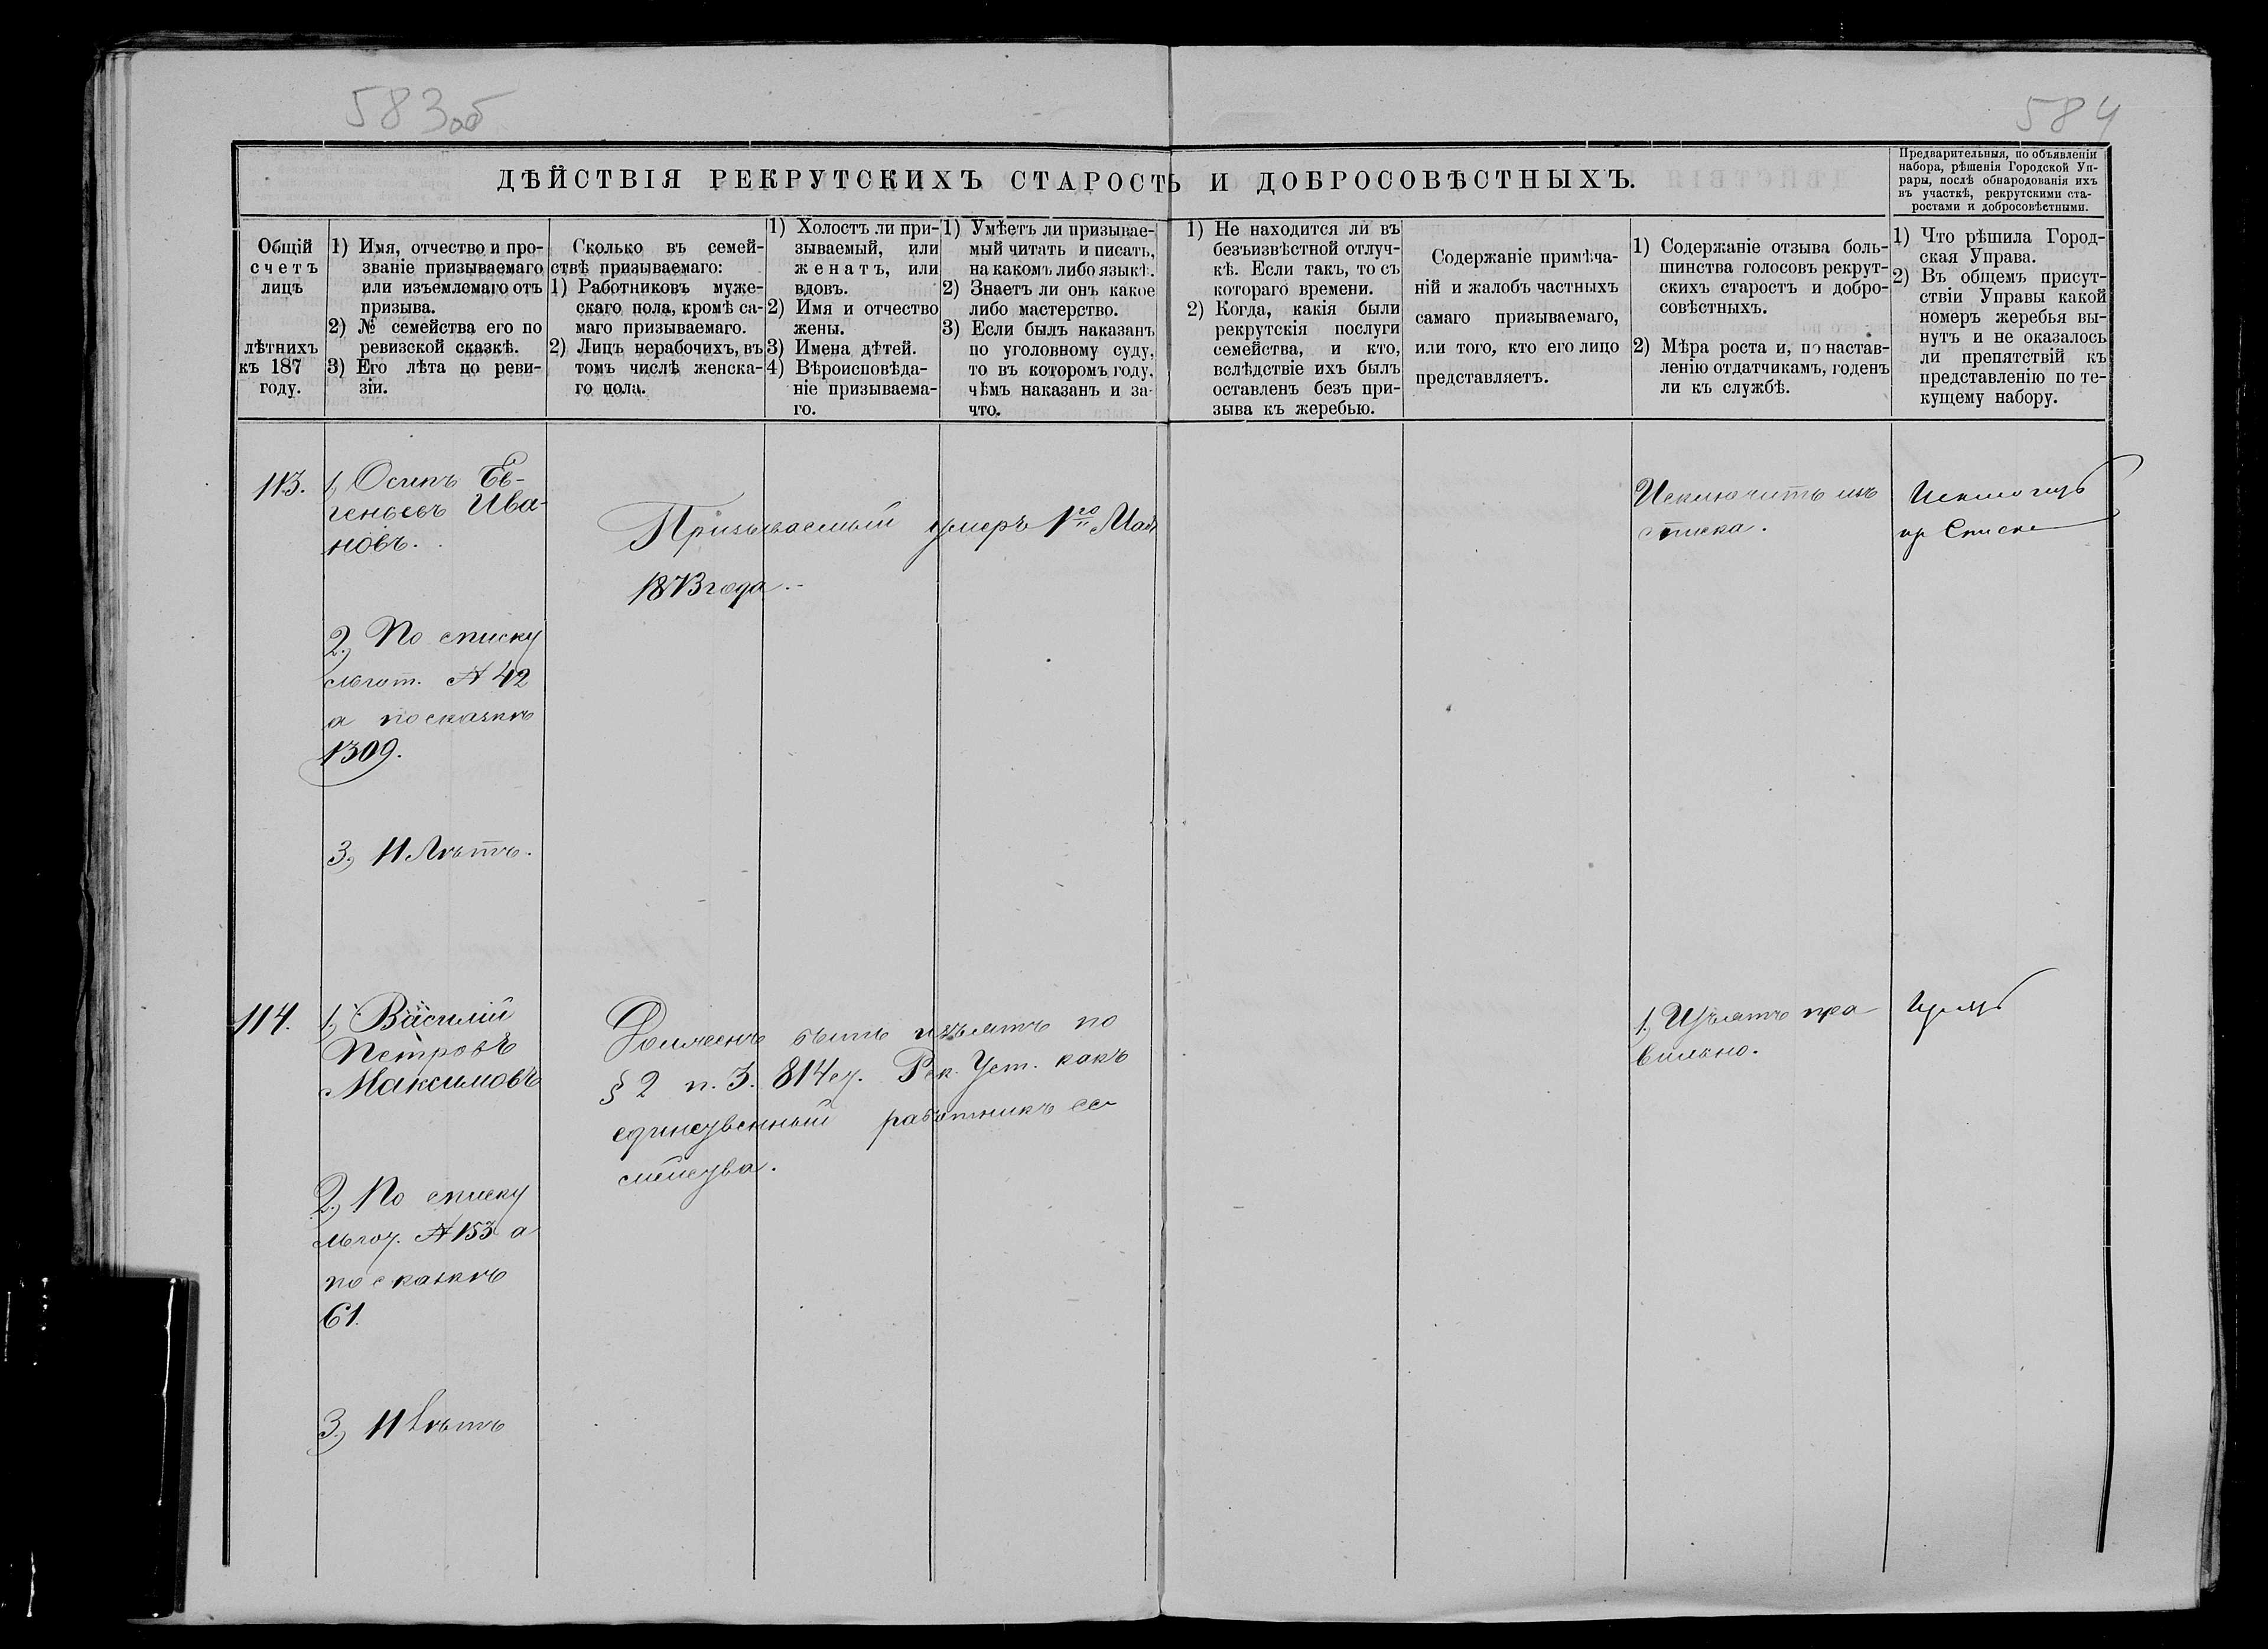 583об
584
ДѢЙСТВІЯ РЕКРУТСКИХЪ СТАРОСТЬ И ДОБРОСОВѢСТНЫХЪ.
Предварительныя, по объявленіи
набора, рѣшенія Городской Уп-
рары, послѣ обнародованія ихъ
въ участкѣ, рекрутскими ста-
ростами и добросовѣстными.
Общій
счетъ
лицъ
лѣтнихъ
къ 187
году.
1) Имя, отчество и про-
званіе призываемаго
или изъемлемаго отъ
призыва.
2) № семейства его по
ревизской сказкѣ.
3) Его лѣта по реви-
зіи.
Сколько въ семей-
ствѣ призываемаго:
1) Работниковъ муже-
скаго пола, кромѣ са-
маго призываемаго.
2) Лицъ нерабочихъ, въ
томъ числѣ женска-
го пола.
1) Холостъ ли при-
зываемый, или
женатъ, или
вдовъ.
2) Имя и отчество
жены.
3) Имена дѣтей.
4) Вѣроисповѣда-
ніе призываема-
го.
1) Умѣетъ ли призывае-
мый читать и писать,
на какомъ либо языкѣ.
2) Знаетъ ли онъ какое
либо мастерство.
3) Если былъ наказанъ
по уголовному суду,
то въ которомъ году,
чѣмъ наказанъ и за-
что.
1) Не находится ли въ
безъизвѣстной отлуч-
кѣ. Если такъ, то съ
котораго времени.
2) Когда, какія были
рекрутскія послуги
семейства, и кто,
вслѣдствіе ихъ былъ
оставленъ безъ при-
зыва къ жеребью.
Содержаніе примѣча-
ній и жалобъ частныхъ
самаго призываемаго,
или того, кто его лицо
представляетъ.
1) Содержаніе отзыва боль-
шинства голосовъ рекрут-
скихъ старостъ и добро-
совѣстныхъ.
2) Мѣра роста и, по настав-
ленію отдатчикамъ, годенъ
ли къ службѣ.
1) Что рѣшила Город-
ская Управа.
2) Въ общемъ присут-
ствіи Управы какой
номеръ жеребья вы-
нутъ и не оказалось
ли препятствій къ
представленію по те-
кущему набору.
113.
1, Осипъ Ев-
геньевъ Ива-
новъ.
2, По списку
льгот. № 42
а по сказкѣ
1309.
3, 11 Лѣтъ.
Призываемый умеръ 1го Мая
1873 года.
Исключить изъ
списка.
114.
1, Василій
Петровъ
Максимовъ
2, По списку
льгот. № 153 а
по сказкѣ
61.
3, 11 Лѣтъ
Долженъ быть изъятъ по
§ 2 п. 3. 814 ст. Рек. Уст. какъ
единственный работникъ се-
мейства.
1, Изъятъ пра-
вильно.